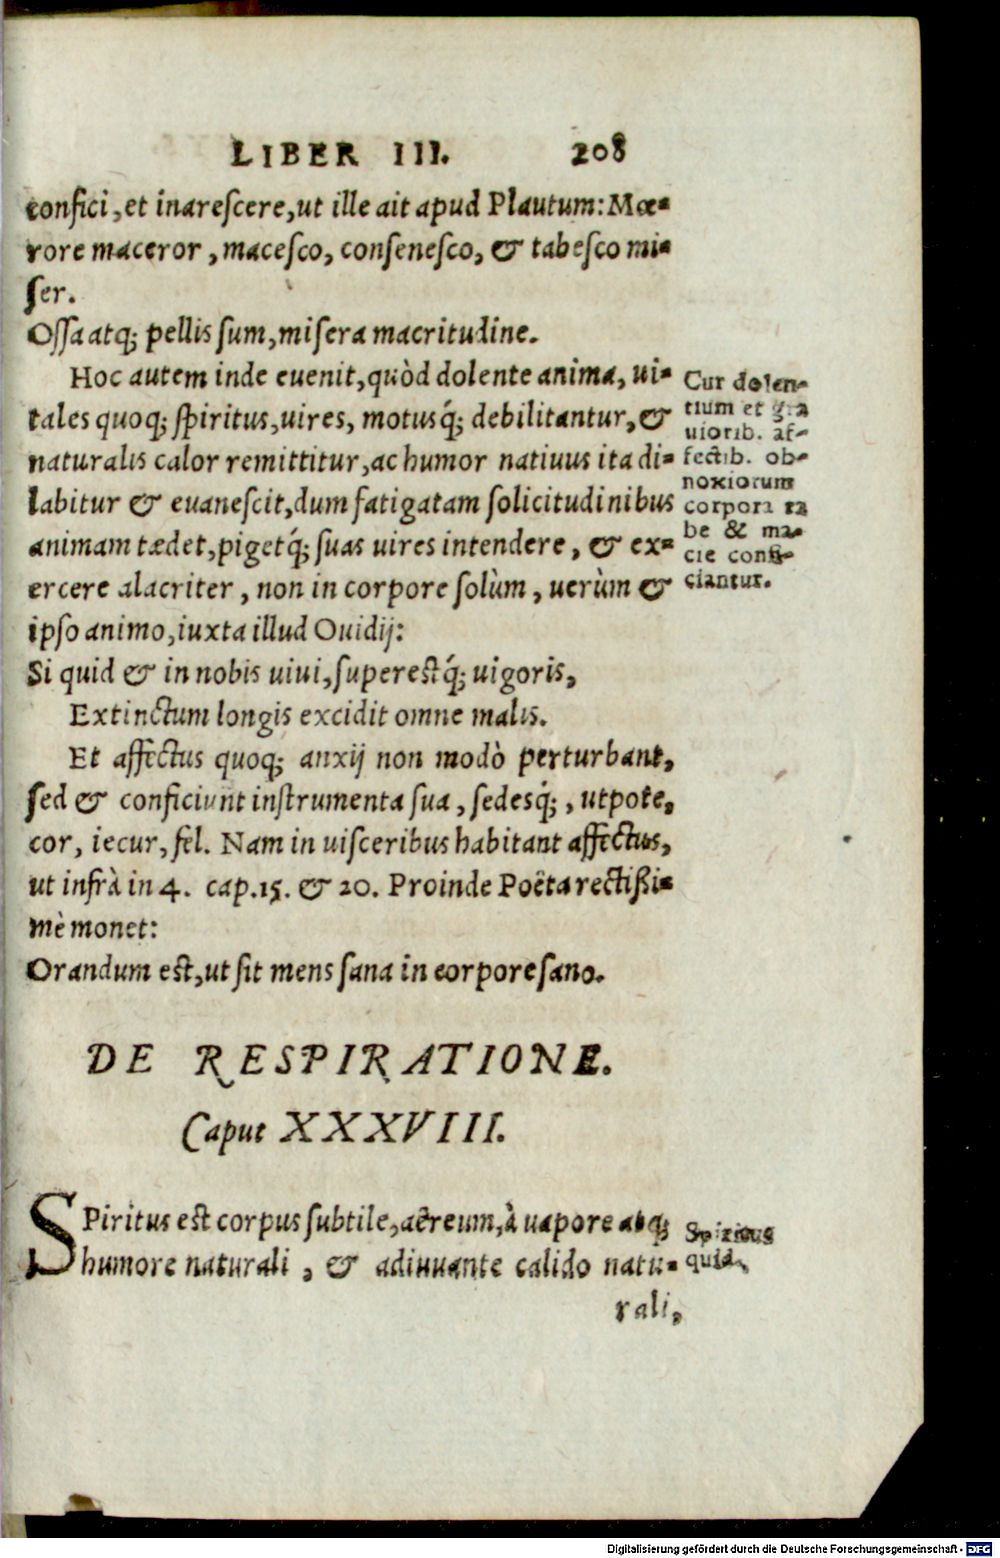 LIBER III. 208
confici, et inarescere, ut ille ait apud Plautum: Mœ-
rore maceror, macesco, consenesco, & tabesco mi-
ser.
Ossa atq; pellis sum, misera macritudine.
Hoc autem inde euenit, quòd dolente anima, ui-
tales quoq; spiritus, uires, motusq́; debilitantur, &
naturalis calor remittitur, ac humor natiuus ita di-
labitur & euanescit, dum fatigatam solicitudinibus
animam tædet, pigetq́; suas uires intendere, & ex-
ercere alacriter, non in corpore solùm, uerùm &
ipso animo, iuxta illud Ouidij:
Si quid & in nobis uiui, superestq́; uigoris,
Extinctum longis excidit omne malis.
Et affectus quoq; anxij non modò perturbant,
sed & conficiunt instrumenta sua, sedesq́;, utpote,
cor, iecur, fel. Nam in uisceribus habitant affectus,
ut infrà in 4. cap. 15. & 20. Proinde Poëta rectißi-
mè monet:
Orandum est, ut sit mens sana in corpore sano.
Cur dolen-
tium et gra
uiorib. af-
fectib. ob-
noxiorum
corpora ta
be & ma-
cie confi-
ciantur.
DE RESPIRATIONE.
Caput XXXVIII.
SPiritus est corpus subtile, aëreum, à uapore atq;
humore naturali, & adiuuante calido natu-
rali,
Spiritus
quid.
Digitalisierung gefördert durch die Deutsche Forschungsgemeinschaft - DFG